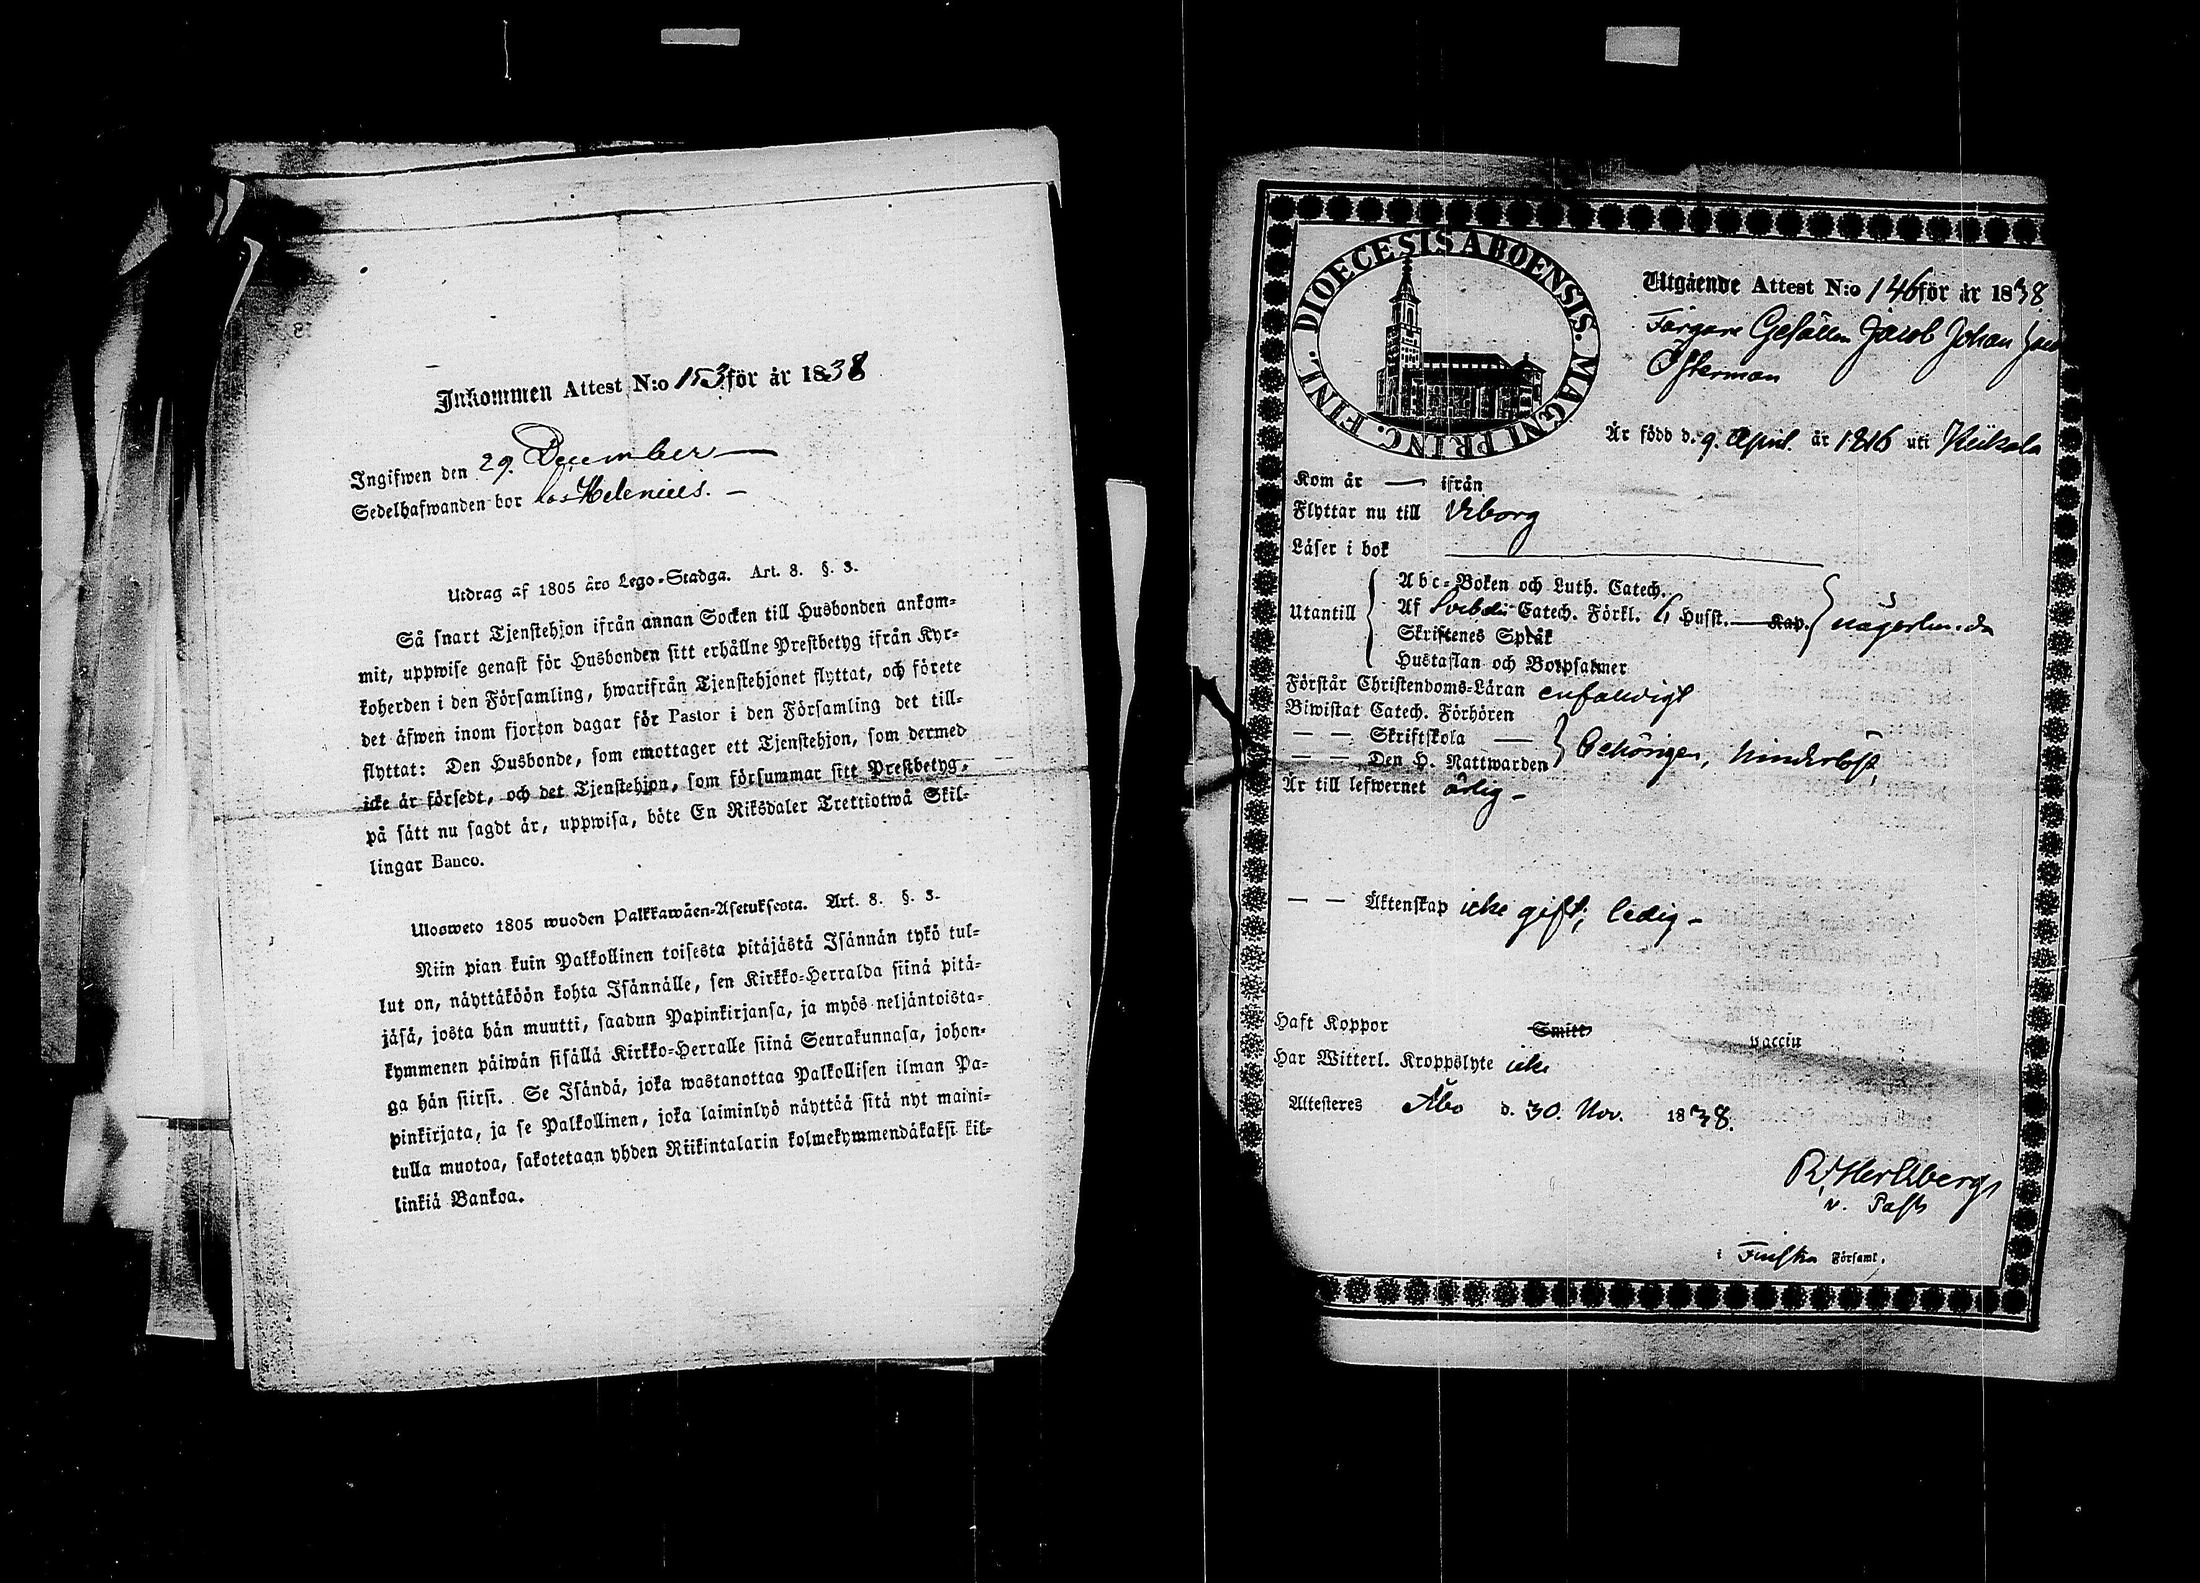 Inkommen Attest N:o 153 för år 1838
Ingifwen den 29. December
Sedelhafwanden bor hos Helenius.
Utdrag af 1805 års Lego-Stadga. Art. 8. §. 3.
Så snart Tjenstehjon ifrån annan Socken till Husbonden ankom-
mit, uppwise genast för Husbonden sitt erhållne Prestbetyg ifrån Kyr-
koherden i den Församling, hwarifrån Tjenstehjonet flyttat, och förete
det äfwen inom fjorton dagar för Pastor i den Församling det till-
flyttat: Den Husbonde, som emottager ett Tjenstehjon, som dermed
icke är försedt, och det Tjenstehjon, som försummar sitt Prestbetyg,
på sätt nu sagdt är, uppwisa, böte En Riksdaler Trettiotwå Skil-
lingar Banco.
Ulosweto 1805 wuoden Palkkawäen-Asetuksesta. Art. 8. §. 3.
Niin pian kuin Palkollinen toisesta pitäjästä Isännän tykö tul-
lut on, näyttäköön kohta Isännälle, sen Kirkko-Herralda siinä pitä-
jäsä, josta hän muutti, saadun Papinkirjansa, ja myös neljäntoista-
kymmenen päiwän sisällä Kirkko-Herralle siinä Seurakunnasa, johon-
ga hän siirsi. Se Isändä, joka wastanottaa Palkollisen ilman Pa-
pinkirjata, ja se Palkollinen, joka laiminlyö näyttää sitä nyt maini-
tulla muotoa, sakotetaan yhden Riikintalarin kolmekymmendäkaksi kil-
linkiä Bankoa.
DIOECESIS ABOENSIS. MAGNI PRINC. FINL.
Utgående Attest N:o 146 för år 1838
Färgare Gesällen Jacob Johan
Österman
Är född d. 9. April. år 1816 uti Kiikala
Kom år — ifrån
Flyttar nu till Viborg
Läser i bok
Utantill
Abc-Boken och Luth. Catech.
Af Svebelii Catech. Förkl. 6 Husst. — Kap.
Skriftenes Språk
Hustaflan och Botpsalmer
någorlunda
Förstår Christendoms-Läran enfaldigt
Biwistat Catech. Förhören
— — Skriftskola —
— — Den H. Nattwarden
behörigen, hinderlöst,
Är till lefwernet ärlig –
— — Äktenskap icke gift; ledig –
Haft Koppor Smitt vaccin
Har Witterl. Kroppslyte icke
Attesteres Åbo d. 30. Nov. 1838.
R. Hertzberg
v. Past.
i Finska Församl.